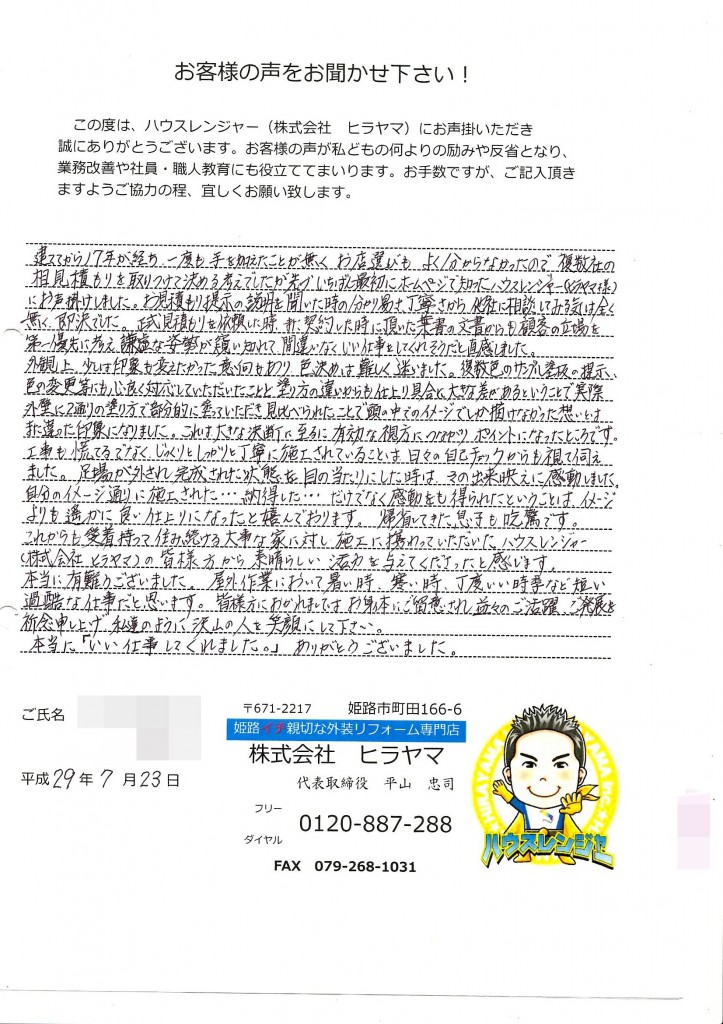 お客様の声をお聞かせ下さい！
この度は、ハウスレンジャー（株式会社　ヒラヤマ）にお声掛いただき
誠にありがとうございます。お客様の声が私どもの何よりの励みや反省となり、
業務改善や社員・職人教育にも役立ててまいります。お手数ですが、ご記入頂き
ますようご協力の程、宜しくお願い致します。
建ててから17年が経ち 一度も手を加えたことが無く お店選びも よく分からなかったので 複数社の
相見積もりを取りつけて決める考えでしたが 先づ いちばん最初にホームページで知ったハウスレンジャー(ヒラヤマ様)
にお声掛けしました。お見積もり提示の説明を聞いた時の分かり易さ 丁寧さから 他社に相談してみる気は全く
無く、即決でした。正式見積もりを依頼した時、又、契約した時に頂いた葉書の文書からも顧客の立場を
第一優先に考え 謙虚な姿勢が窺い知れて 間違いなくいい仕事をしてくれそうだと直感しました。
外観上、少しは印象も変えたかった意向もあり 色決めは難しく迷いました。複数色のサンプル塗板の提示、
色の変更等にも心良く対応していただいたことと 塗り方の違いからも仕上り具合に大きな差があるということで 実際
外壁に2通りの塗り方で部分的に塗っていただき 見比べられたことで頭の中でのイメージでしか描けなかった想いとは
また違った印象になりました。これは大きな決断に至るに有効な視方につながり ポイントになったところです。
工事も慌てるでなく、じっくりとしっかりと丁寧に施工されていることは 日々の自己チェックからも視て伺え
ました。足場が外され 完成された状態を 目の当たりにした時は、その出来映えに感動しました。
自分のイメージ通りに施工された…納得した…だけでなく感動をも得られたということは、イメージ
よりも遥かに良い仕上りになったと嬉んでおります。帰省してきた息子も吃驚です。
これからも愛着持って住み続ける大事な家に対し 施工に携わっていただいた ハウスレンジャー
(株式会社 ヒラヤマ)の皆様方から素晴らしい 活力を与えてくださったと感じます。
本当に有難うございました。屋外作業において暑い時、寒い時、丁度いい時季など短い
過酷な仕事だと思います。皆様方におかれましては お身体にご留意され 益々のご活躍、ご発展を
祈念申し上げ 私達のように 沢山の人を笑顔にして下さい。
本当に「いい仕事してくれました。」ありがとうございました。
ご氏名
平成29年7月23日
〒671-2217　姫路市町田166-6
姫路イチ親切な外装リフォーム専門店
株式会社　ヒラヤマ
代表取締役　平山　忠司
フリー
ダイヤル
0120-887-288
FAX　079-268-1031
HIRAYAMA INC.
ハウスレンジャー